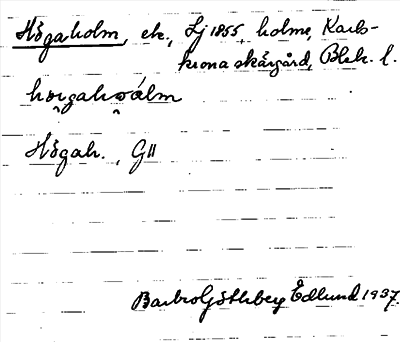 Högaholm, ek., Lj 1855, holme, Karls-
krona skärgård, Blek. l.
Högah., GII
Barbro Göthberg Edlund 1937.